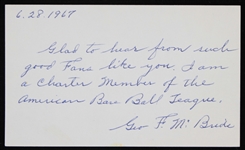 6.28.1967
Glad to hear from such
good Fans like you. I am
a Charter Member of the
American Base Ball League.
Geo F. McBride